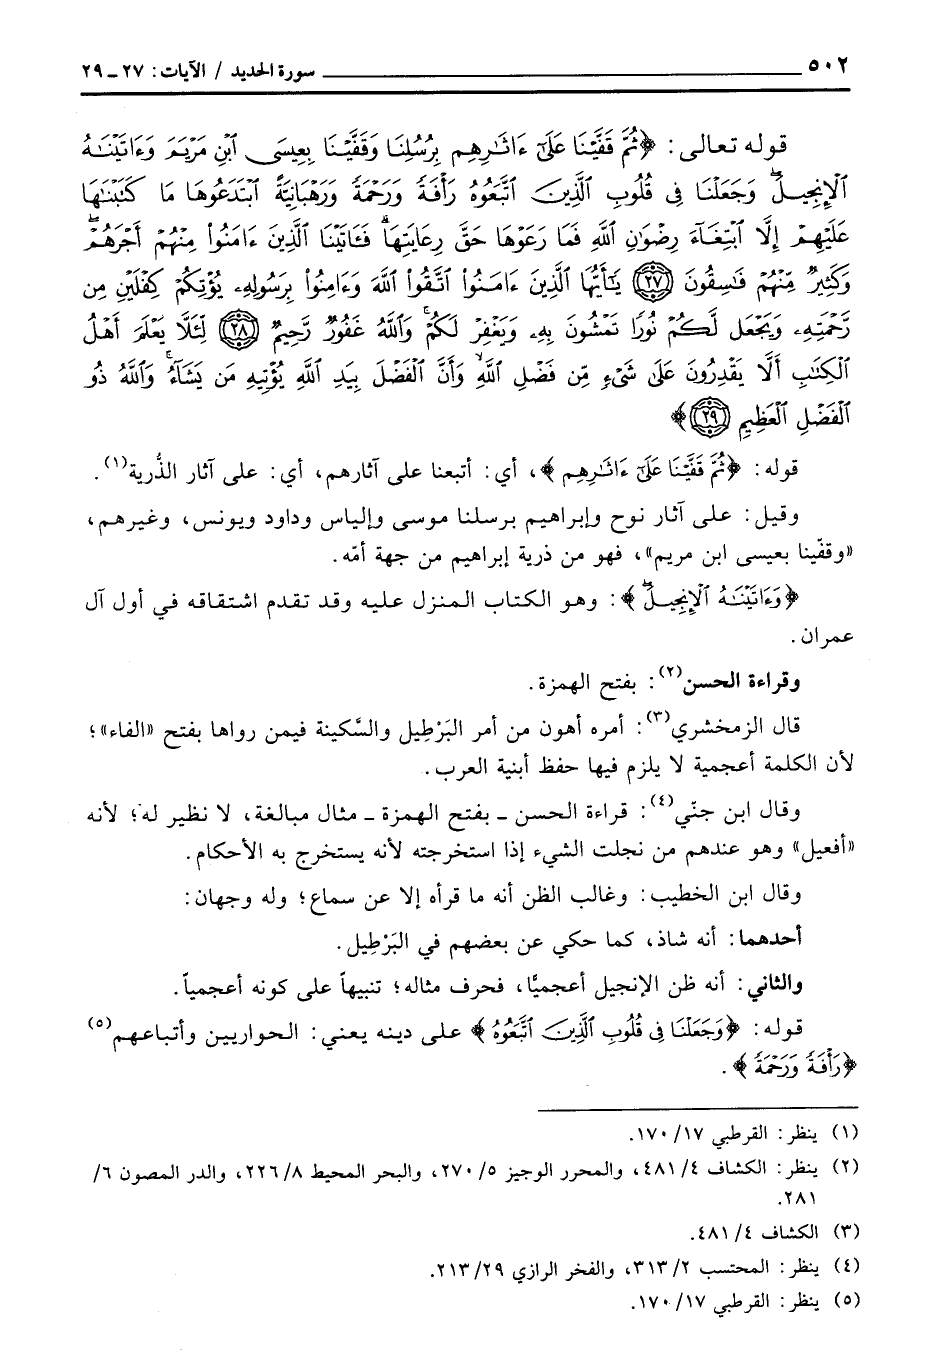 ٥٠٢ سورة الحديد / الآيات: ٢٧ ـ ٢٩
قوله تعالى: ﴿ثُمَّ قَفَّيْنَا عَلَىٰٓ ءَاثَٰرِهِم بِرُسُلِنَا وَقَفَّيْنَا بِعِيسَى ٱبْنِ مَرْيَمَ وَءَاتَيْنَٰهُ
ٱلْإِنجِيلَۖ وَجَعَلْنَا فِى قُلُوبِ ٱلَّذِينَ ٱتَّبَعُوهُ رَأْفَةً وَرَحْمَةً وَرَهْبَانِيَّةً ٱبْتَدَعُوهَا مَا كَتَبْنَٰهَا
عَلَيْهِمْ إِلَّا ٱبْتِغَآءَ رِضْوَٰنِ ٱللَّهِ فَمَا رَعَوْهَا حَقَّ رِعَايَتِهَاۖ فَـَٔاتَيْنَا ٱلَّذِينَ ءَامَنُوا۟ مِنْهُمْ أَجْرَهُمْۖ
وَكَثِيرٌ مِّنْهُمْ فَٰسِقُونَ ﴿٢٧﴾ يَٰٓأَيُّهَا ٱلَّذِينَ ءَامَنُوا۟ ٱتَّقُوا۟ ٱللَّهَ وَءَامِنُوا۟ بِرَسُولِهِۦ يُؤْتِكُمْ كِفْلَيْنِ مِن
رَّحْمَتِهِۦ وَيَجْعَل لَّكُمْ نُورًا تَمْشُونَ بِهِۦ وَيَغْفِرْ لَكُمْۚ وَٱللَّهُ غَفُورٌ رَّحِيمٌ ﴿٢٨﴾ لِّئَلَّا يَعْلَمَ أَهْلُ
ٱلْكِتَٰبِ أَلَّا يَقْدِرُونَ عَلَىٰ شَىْءٍ مِّن فَضْلِ ٱللَّهِۙ وَأَنَّ ٱلْفَضْلَ بِيَدِ ٱللَّهِ يُؤْتِيهِ مَن يَشَآءُۚ وَٱللَّهُ ذُو
ٱلْفَضْلِ ٱلْعَظِيمِ ﴿٢٩﴾﴾
قوله: ﴿ثُمَّ قَفَّيْنَا عَلَىٰٓ ءَاثَٰرِهِم﴾، أي: أتبعنا على آثارهم، أي: على آثار الذُّرية(١).
وقيل: على آثار نوح وإبراهيم برسلنا موسى وإلياس وداود ويونس، وغيرهم،
«وقفّينا بعيسى ابن مريم»، فهو من ذرية إبراهيم من جهة أمّه.
﴿وَءَاتَيْنَٰهُ ٱلْإِنجِيلَۖ﴾: وهو الكتاب المنزل عليه وقد تقدم اشتقاقه في أول آل
عمران.
وقراءة الحسن(٢): بفتح الهمزة.
قال الزمخشري(٣): أمره أهون من أمر البَرْطِيل والسَّكينة فيمن رواها بفتح «الفاء»؛
لأن الكلمة أعجمية لا يلزم فيها حفظ أبنية العرب.
وقال ابن جنّي(٤): قراءة الحسن ـ بفتح الهمزة ـ مثال مبالغة، لا نظير له؛ لأنه
«أفعيل» وهو عندهم من نجلت الشيء إذا استخرجته لأنه يستخرج به الأحكام.
وقال ابن الخطيب: وغالب الظن أنه ما قرأه إلا عن سماع؛ وله وجهان:
أحدهما: أنه شاذ، كما حكي عن بعضهم في البَرْطِيل.
والثاني: أنه ظن الإنجيل أعجميًّا، فحرف مثاله؛ تنبيهاً على كونه أعجمياً.
قوله: ﴿وَجَعَلْنَا فِى قُلُوبِ ٱلَّذِينَ ٱتَّبَعُوهُ﴾ على دينه يعني: الحواريين وأتباعهم(٥)
﴿رَأْفَةً وَرَحْمَةً﴾.
(١) ينظر: القرطبي ١٧/ ١٧٠.
(٢) ينظر: الكشاف ٤/ ٤٨١، والمحرر الوجيز ٥/ ٢٧٠، والبحر المحيط ٨/ ٢٢٦، والدر المصون ٦/
٢٨١.
(٣) الكشاف ٤/ ٤٨١.
(٤) ينظر: المحتسب ٢/ ٣١٣، والفخر الرازي ٢٩/ ٢١٣.
(٥) ينظر: القرطبي ١٧/ ١٧٠.